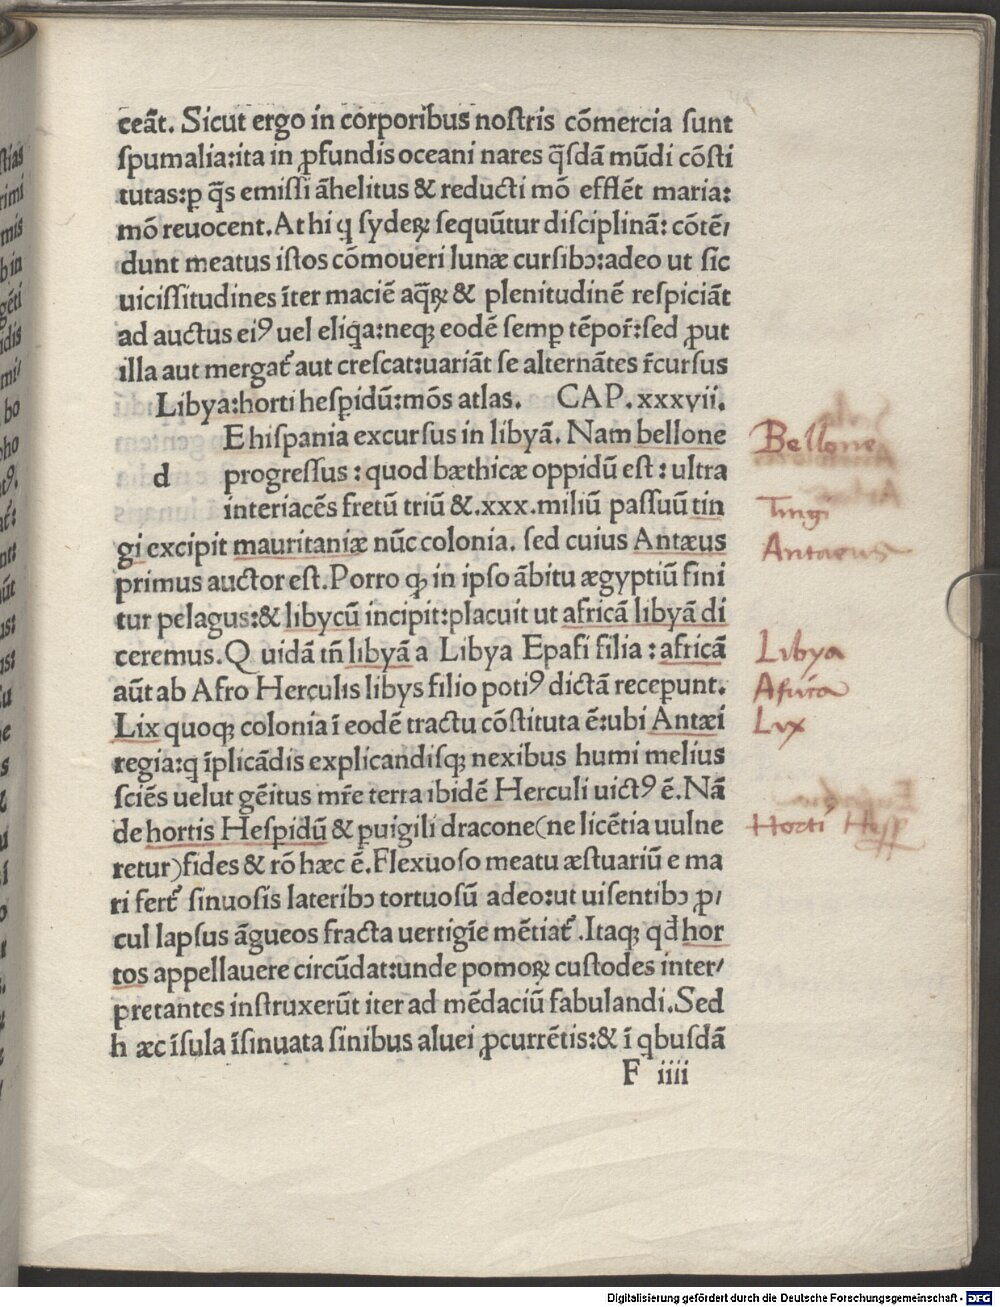 ceãt. Sicut ergo in corporibus nostris cõmercia sunt
spumalia:ita in ꝓfundis oceani nares q̃sdã mũdi cõsti
tutas:ꝑ q̃s emissi ãhelitus & reducti mõ efflẽt maria:
mõ reuocent. At hi ꝗ syderꝝ sequũtur disciplinã: cõtẽ/
dunt meatus istos cõmoueri lunæ cursibꝰ:adeo ut sic
uicissitudines ĩter maciẽ aq̃ꝝ & plenitudinẽ respiciãt
ad auctus eiꝰ uel eliq̃a:neqꝫ eodẽ semꝑ tẽpor̃:sed ꝓut
illa aut mergat᷑ aut crescat:uariãt se alternãtes r̃cursus
Libya:horti hesꝑidũ:mõs atlas. CAP. xxxvii.
E hispania excursus in libyã. Nam bellone Bellone
d progressus : quod bæthicæ oppidũ est : ultra
interiacẽs fretũ triũ &.xxx.miliũ passuũ tin Tingi
gi excipit mauritaniæ nũc colonia. sed cuius Antæus Antaeus
primus auctor est. Porro ꝙ in ipso ãbitu ægyptiũ fini
tur pelagus:& libycũ incipit:placuit ut africã libyã di
ceremus. Q uidã tñ libyã a Libya Epafi filia : africã Libya
aũt ab Afro Herculis libys filio potiꝰ dictã receꝑunt. Africa
Lix quoqꝫ colonia ĩ eodẽ tractu cõstituta ẽ:ubi Antæi Lix
regia:ꝗ ĩplicãdis explicandisqꝫ nexibus humi melius
sciẽs uelut gẽitus mr̃e terra ibidẽ Herculi uictꝰ ẽ. Nã
de hortis Hesꝑidũ & ꝑuigili dracone(ne licẽtia uulne Horti Hesꝑ
retur)fides & rõ hæc ẽ. Flexuoso meatu æstuariũ e ma
ri fert᷑ sinuosis lateribꝰ tortuosũ adeo:ut uisentibꝰ ꝓ/
cul lapsus ãgueos fracta uertigĩe mẽtiat᷑ .Itaqꝫ qđ hor
tos appellauere circũdat:unde pomoꝝ custodes inter/
pretantes instruxerũt iter ad mẽdaciũ fabulandi. Sed
h æc ĩsula ĩsinuata sinibus aluei ꝓcurrẽtis:& ĩ qbusdã
F iiii
Digitalisierung gefördert durch die Deutsche Forschungsgemeinschaft - DFG